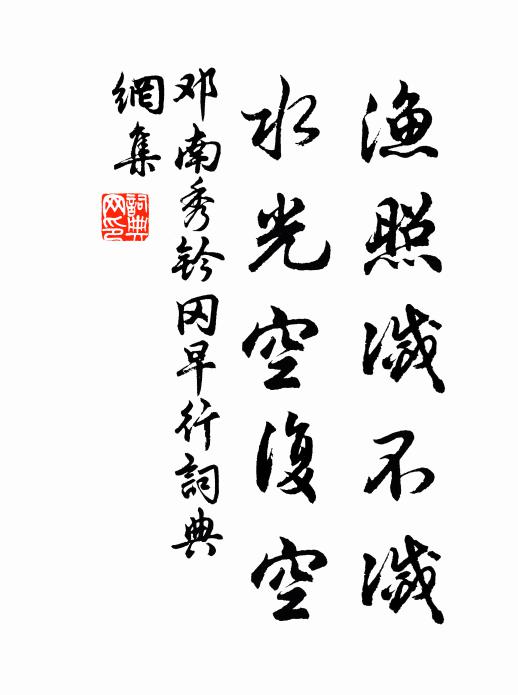 漁照滅不滅
水光空復空
邓南秀鈐冈早行詞典
網集
詞典網印